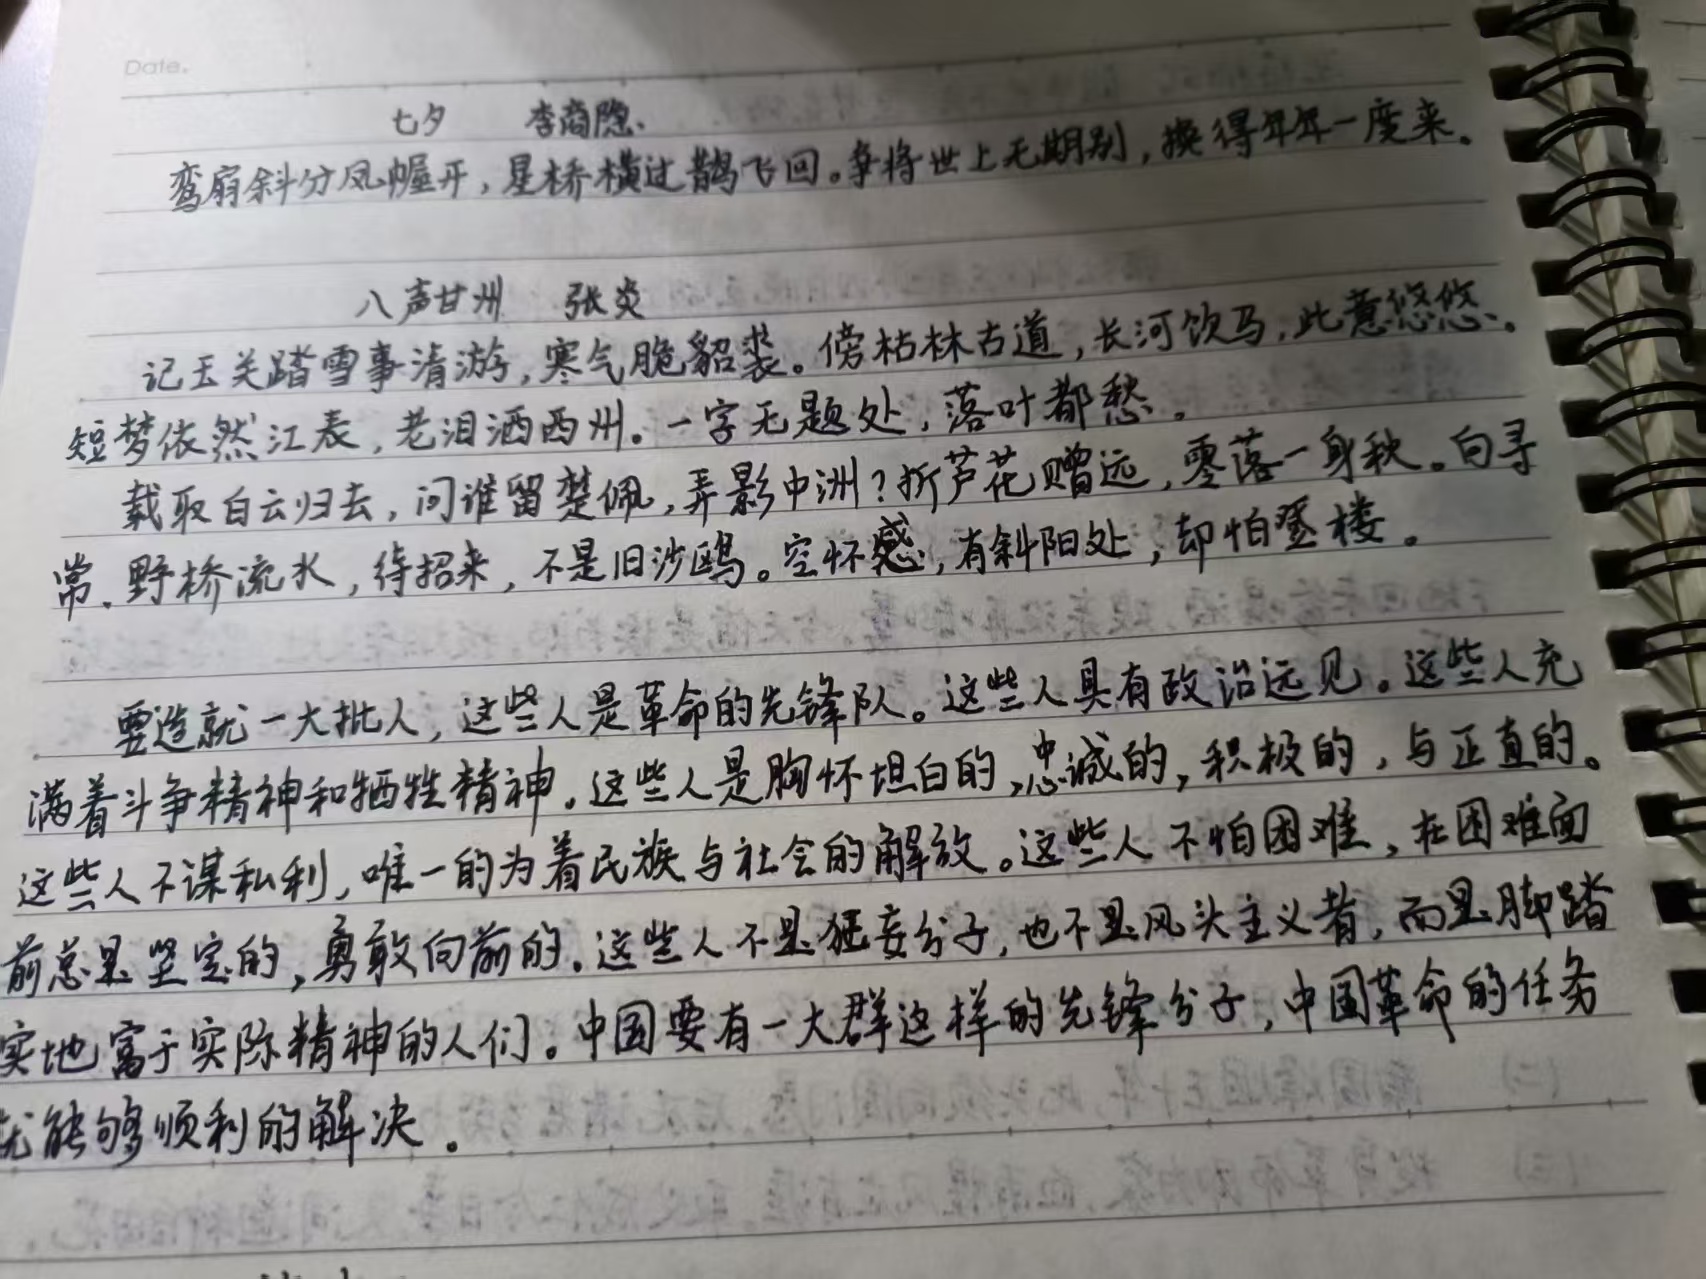 Date.
七夕 李商隐
鸾扇斜分凤幄开，星桥横过鹊飞回。争将世上无期别，换得年年一度来。
八声甘洲 张炎
记玉关踏雪事清游，寒气脆貂裘。傍枯林古道，长河饮马，此意悠悠。
短梦依然江表，老泪洒西州。一字无题处，落叶都愁。
载取白云归去，问谁留楚佩，弄影中洲？折芦花赠远，零落一身秋。向寻
常、野桥流水，待招来，不是旧沙鸥。空怀感，有斜阳处，却怕登楼。
要造就一大批人，这些人是革命的先锋队。这些人具有政治远见。这些人充
满着斗争精神和牺牲精神。这些人是胸怀坦白的，忠诚的，积极的，与正直的。
这些人不谋私利，唯一的为着民族与社会的解放。这些人不怕困难，在困难面
前总是坚定的，勇敢向前的。这些人不是狂妄分子，也不是风头主义者，而是脚踏
实地富于实际精神的人们。中国要有一大群这样的先锋分子，中国革命的任务
就能够顺利的解决。